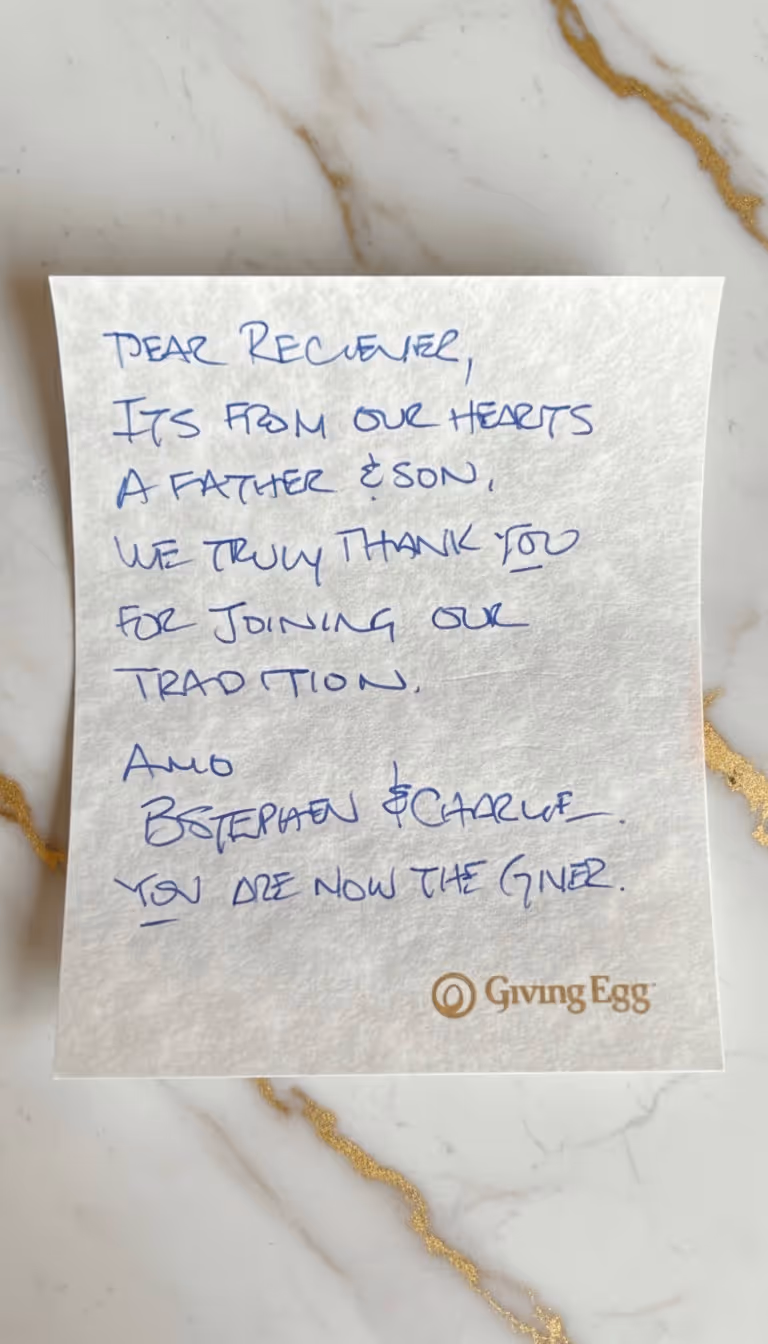 DEAR RECIEVER,
ITS FROM OUR HEARTS
A FATHER & SON.
WE TRULY THANK YOU
FOR JOINING OUR
TRADITION.
AMO
STEPHEN & CHARLIE.
YOU ARE NOW THE GIVER.
Giving Egg